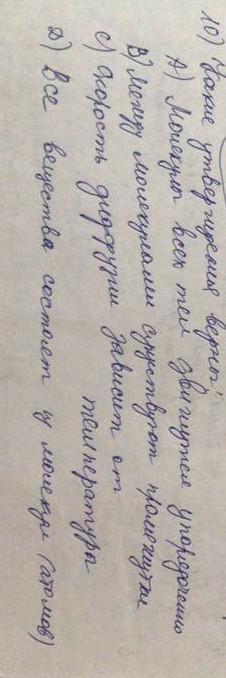 10) Какие утверждения верны:
А) Молекулы всех тел движутся упорядочено
В) Между молекулами существуют промежутки
С) Скорость диффузии зависит от
температуры
D) Все вещества состоят из молекул (атомов)